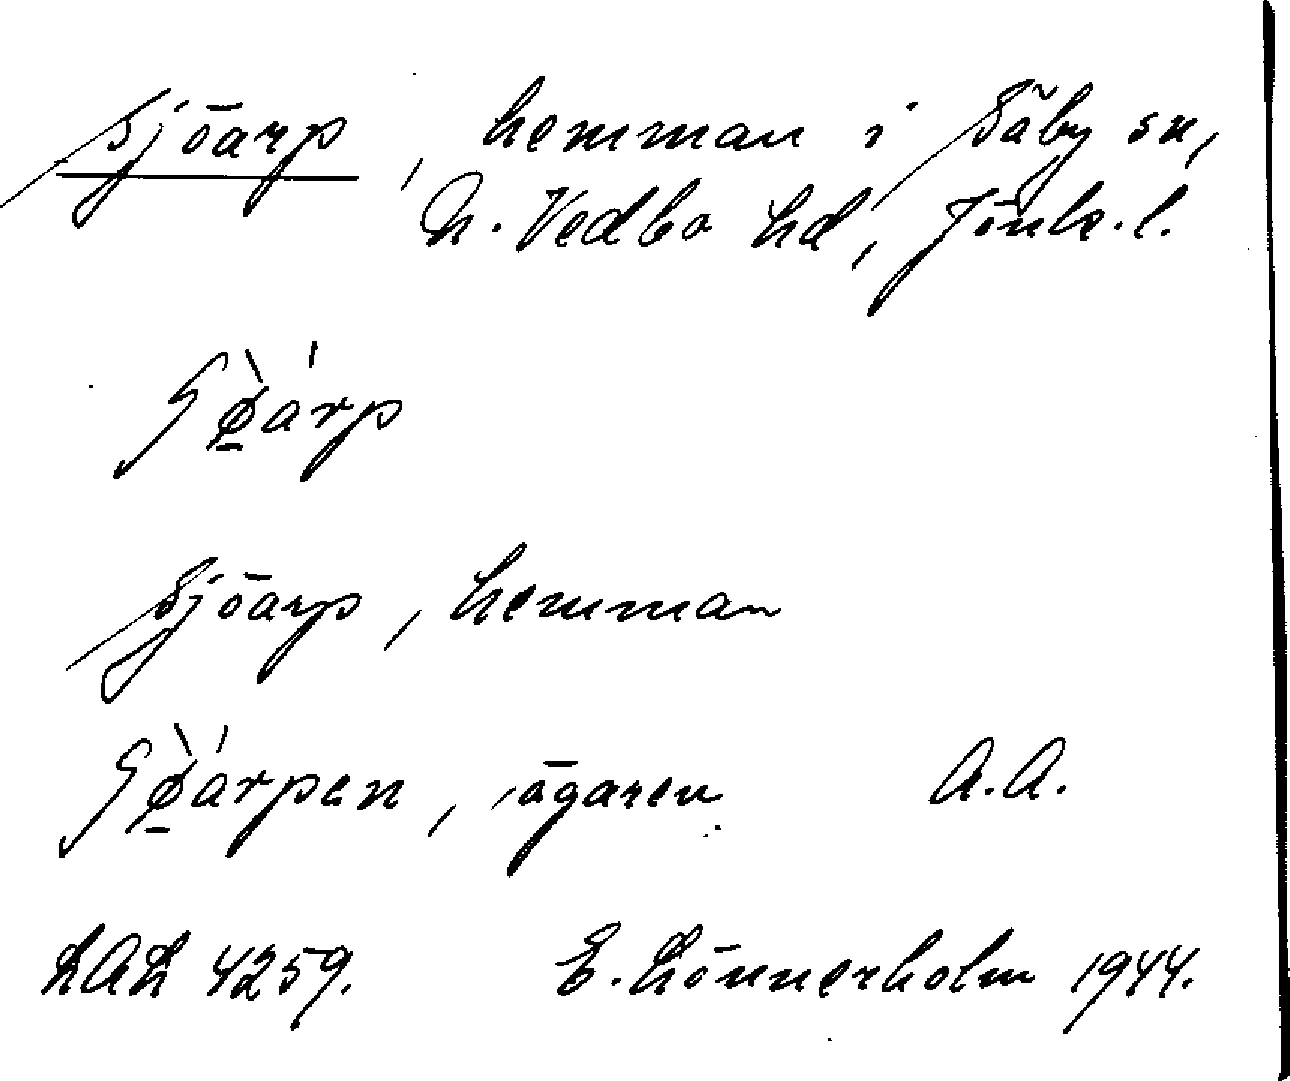 Sjöarp, hemman i Säby sn,
N. Vedbo hd, Jönk. l.
Sjöarp, hemman
ägaren A.A.
LAL 4259. E. Lönnerholm 1944.